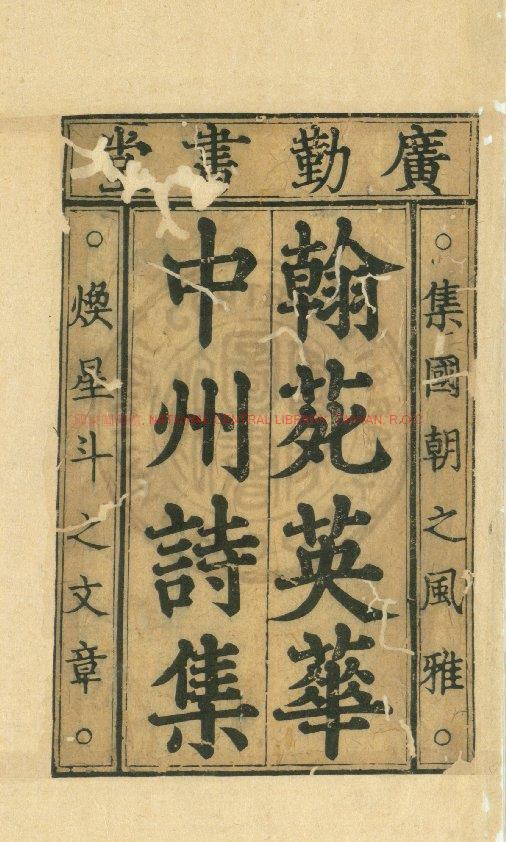 廣勤書堂
集國朝之風雅
翰苑英華
中州詩集
煥星斗之文章
NATIONAL CENTRAL LIBRARY, TAIWAN, R.O.C